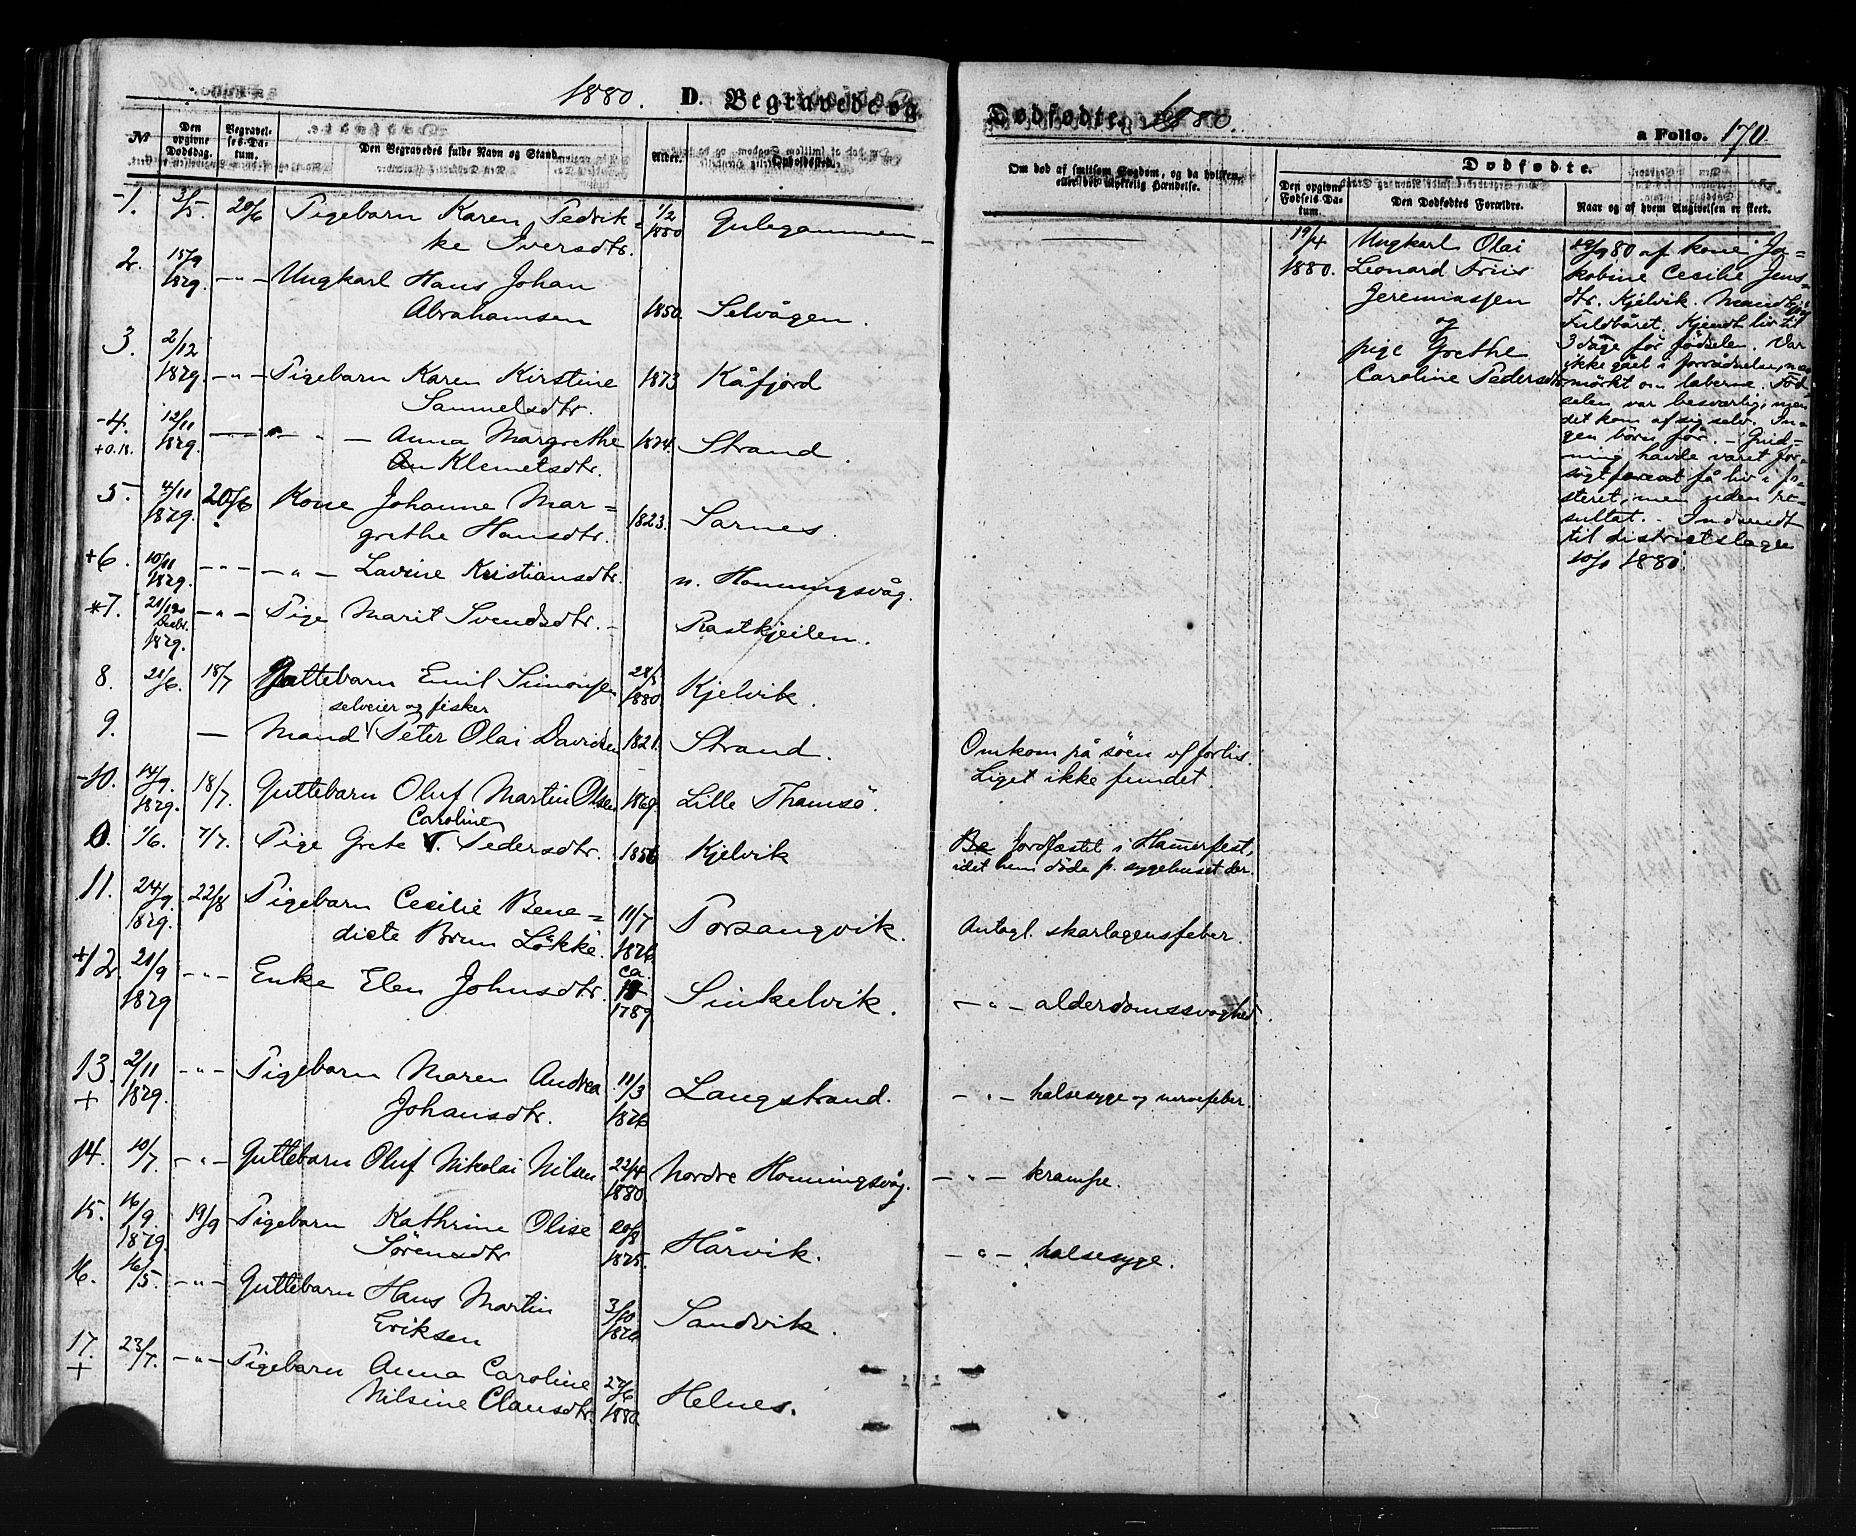 1880. D. Begravede og
Dødfødte. 1880.
a Folio. 170.
№ Den opgivne Dødsdag. Begravelses-Datum. Den Begravedes fulde Navn og Stand. Alder. Opholdssted.
Om død af smitsom Sygdom, og da hvilken, eller ved ulykkelig Hændelse.
Dødfødte.
Den opgivne Fødsels-Datum. Den Dødfødtes Forældre. Naar og af hvem Angivelsen er skeet.
1. 3/5 20/6 Pigebarn Karen Fedrik= 1/2 1880 Gulegammen
ke Iversdtr.
2. 15/9 1879. -"- Ungkarl Hans Johan
Abrahamsen 1850. Selvågen.
3. 2/12
1879. -"- Pigebarn Karen Kirstine 1873 Kåfjord
Samuelsdtr.
-4. 12/11 1879. -"- -"- Anna Margrethe 1874. Strand.
Klemetsdtr.
5. 4/11 1879. 20/6 Kone Johanne Mar=
grethe Hansdtr. 1823. Sarnes.
+6. 10/11 1879. -"- -"- Lavine Kristiansdtr. n. Honningsvåg.
+7. Decbr. 1879. -"- Pige Marit Svendsdtr. -
8. 21/6. 18/7 Guttebarn Emil Simonsen 28/5 1880. Kjelvik.
selveier og fisker
9. - Mand Peter Olai Davidsen 1821. Strand. Omkom på søen v/ forlis.
Liget ikke fundet.
-10. 14/9. 1879. 18/7. Guttebarn Oluf Martin Olsen 1869. Lille Thamsø.
Caroline
0. 1/6. 7/7. Pige Grete Pedersdtr. 1856 Kjelvik Jordfæstet i Hamerfest,
idet hun døde p. sygehuset der.
11. 24/9. 1879. 22/8 Pigebarn Cecilie Bene= 11/7
dicte Brun Løkke. 1876. Porsangvik. Antagl. skarlagensfeber.
+12. 21/9 1879 -"- Enke Elen Johnsdtr. ca. 1789 Sinkelvik. -"- alderdomssvaghed.
13. + 2/11 1879. -"- Pigebarn Maren Andrea 11/3 Langstrand. -"- halsesyge og nervefeber.
Johansdtr. 1876
14. 10/7. -"- Guttebarn Oluf Nikolai Nilsen 22/4 1880. Nordre Honningsvåg. -"- krampe.
15. 16/9. 1879. 19/9 Pigebarn Kathrine Olise 20/8
Sørensdtr 1875. Hårvik. -"- halsesyge.
16. 16/5. -"- Guttebarn Hans Martin
Eriksen Sandvik.
17. + 23/7. -"- Pigebarn Anna Caroline 27/6
Nilsine Clausdtr. 1880. Helnes.
19/4
1880.
Ungkarl Olai
Leonard Friis
Jeremiassen
og
pige Grethe
Caroline Pedersdtr
80 af kone Ja=
kobine Cecilie Jens=
dtr. Kjelvik.
Fuldbåret. Kjendt liv til
3 dage før fødselen. Var
ikke gået i forrådnelse, men
mørkt om læberne. Fød=
selen var besværlig, men
det kom af sig selv. In=
gen børn før. - Gnid=
ning havde været for=
søgt få liv i fo=
steret, men uden re=
sultat. - Indsendt
til districtslægen
1880.